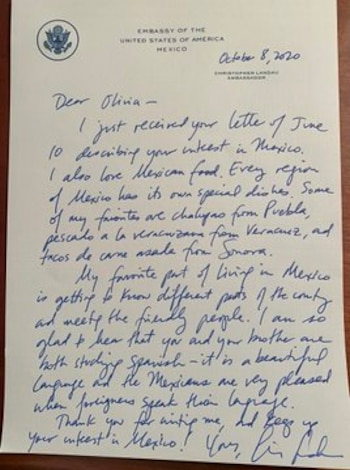 EMBASSY OF THE
UNITED STATES OF AMERICA
MEXICO
October 8, 2020
CHRISTOPHER LANDAU
AMBASSADOR
Dear Olivia —
I just received your letter of June
10 describing your interest in Mexico.
I also love Mexican food. Every region
of Mexico has its own special dishes. Some
of my favorites are chalupas from Puebla,
pescado a la veracruzana from Veracruz, and
tacos de carne asada from Sonora.
My favorite part of living in Mexico
is getting to know different parts of the country
and meeting the friendly people. I am so
glad to hear that you and your brother are
both studying Spanish — it is a beautiful
language and the Mexicans are very pleased
when foreigners speak their language.
Thank you for writing me, and keep up
your interest in Mexico! Yours,